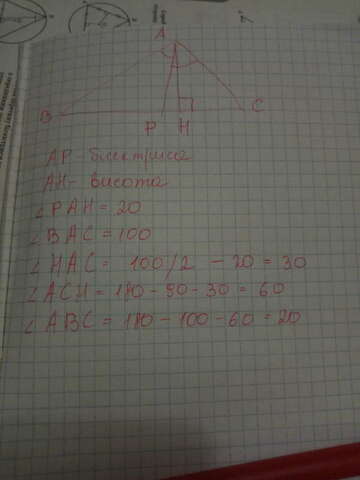 A
B
P
H
C
AP - бисектриса
AH - висота
∠PAH = 20
∠BAC = 100
∠HAC = 100/2 - 20 = 30
∠ACH = 180 - 90 - 30 = 60
∠ABC = 180 - 100 - 60 = 20